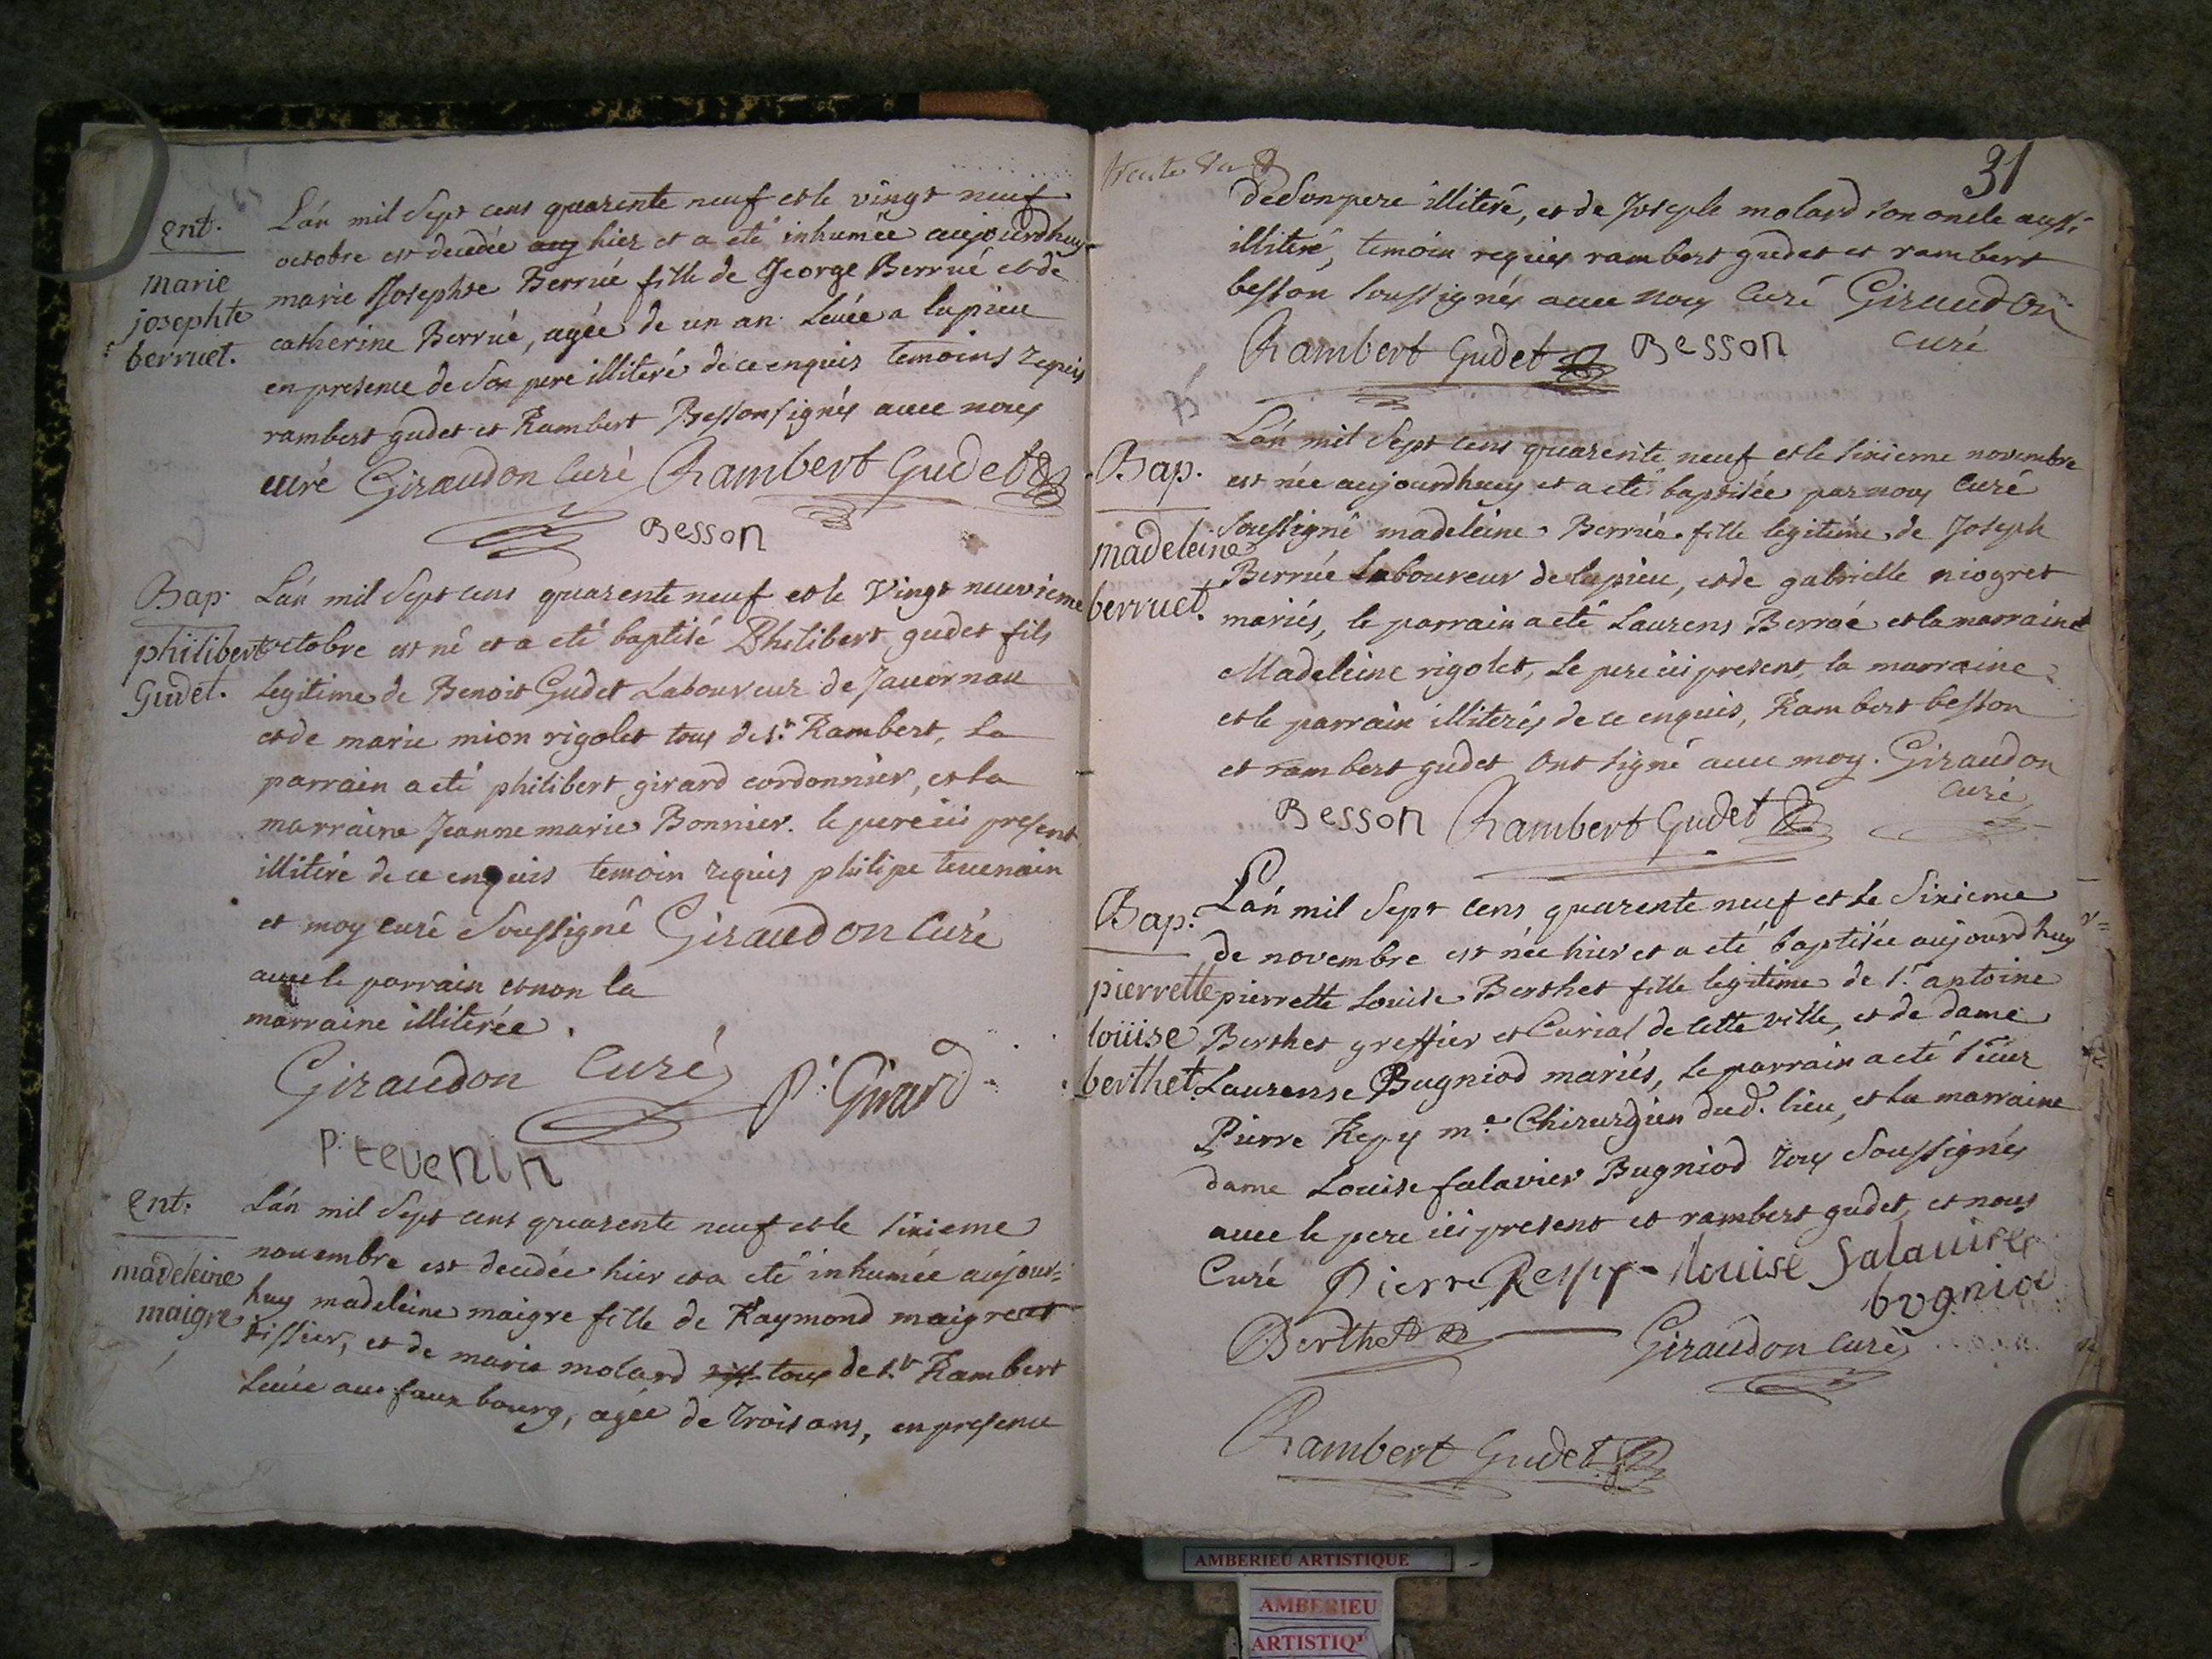 ent.
marie
josephte
berruet.
L'an mil Sept cens quarente neuf et le vingt neuf
octobre est decedée hier et a eté inhumée aujourdhuy
marie Josephte Berrué fille de George Berrué et de
catherine Berrué, agée de un an. Levée a lupieu
en presence de Son pere illiteré de ce enquis temoins requis
rambert gudet et Rambert Besson signés avec nous
curé Giraudon Curé Rambert Gudet
Besson
Bap.
philibert
Gudet.
L'an mil Sept cens quarente neuf et le Vingt neuvieme
octobre est né et a eté baptisé Philibert gudet fils
legitime de Benoit Gudet Laboureur de Javornau
et de marie mion rigolet tous de st. Rambert, Le
parrain a eté philibert girard cordonnier, et la
marraine Jeanne marie Bonnier. le pere ici present
illiteré de ce enquis temoin requis philipe tevenain
et moy curé Soussigné Giraudon Curé
avec le parrain et non la
marraine illiterée.
Giraudon Curé P. Girard
P. tevenin
Ent.
madeleine
maigre
L'an mil Sept cens quarente neuf et le sixieme
novembre est decedée hier et a eté inhumée aujour=
huy madeleine maigre fille de Raymond maigre
tissier, et de marie molard tous de st. Rambert
Levée au faux bourg, agée de trois ans, en presence
trente un
31
de Son pere illiteré, et de Joseph molard son oncle aussi
illiteré, temoin requis rambert gudet et rambert
besson soussignés avec nous Curé Giraudon
curé
Rambert Gudet Besson
Bap.
madeleine
berruet.
L'an mil Sept cens quarente neuf et le sixieme novembre
est née aujourdhuy et a eté baptisée par nous Curé
Soussigné madeleine Berrué fille legitime de Joseph
Berrué Laboureur de lupieu, et de gabrielle niogret
mariés, le parrain a eté Laurens Berroé et la marraine
Madeleine rigolet, Le pere ici present, la marraine
et le parrain illiterés de ce enquis, Rambert besson
et rambert gudet Ont signé avec moy. Giraudon
Curé
Besson Rambert Gudet
Bap.
pierrette
loüise
berthet
L'an mil Sept cens quarente neuf et Le Sixieme
de novembre est née hier et a eté baptisée aujourdhuy
pierrette Louise Berthet fille legitime de sr. antoine
Berthet greffier et Curial de cette ville, et de dame
Laurense Bugniod mariés, Le parrain a eté sieur
Pierre Repy me. Chirurgien dud. lieu, et la marraine
dame Louise falavier Bugniod tous Soussignés
avec le pere ici present et rambert gudet, et nous
Curé Pierre Repy louise falavier
bugniod
Berthet Giraudon Curé
Rambert Gudet
AMBERIEU ARTISTIQUE
AMBERIEU
ARTISTIQ